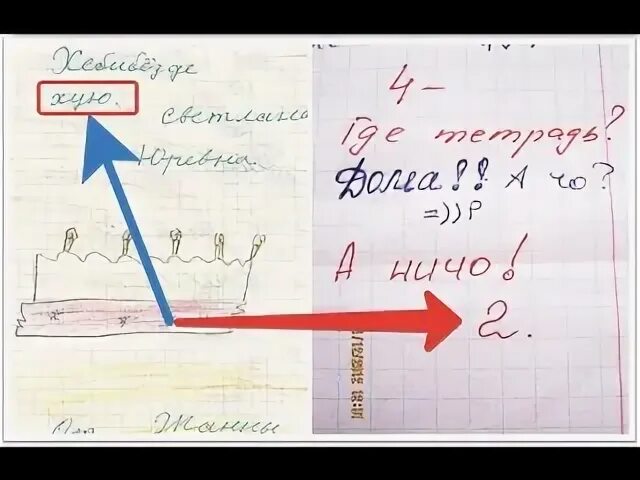 Хебибёзде
хую.
светлана
Юревна.
Жанны
4-
Где тетрадь?
Дома!! А чо?
=))Р
А ничо!
2.